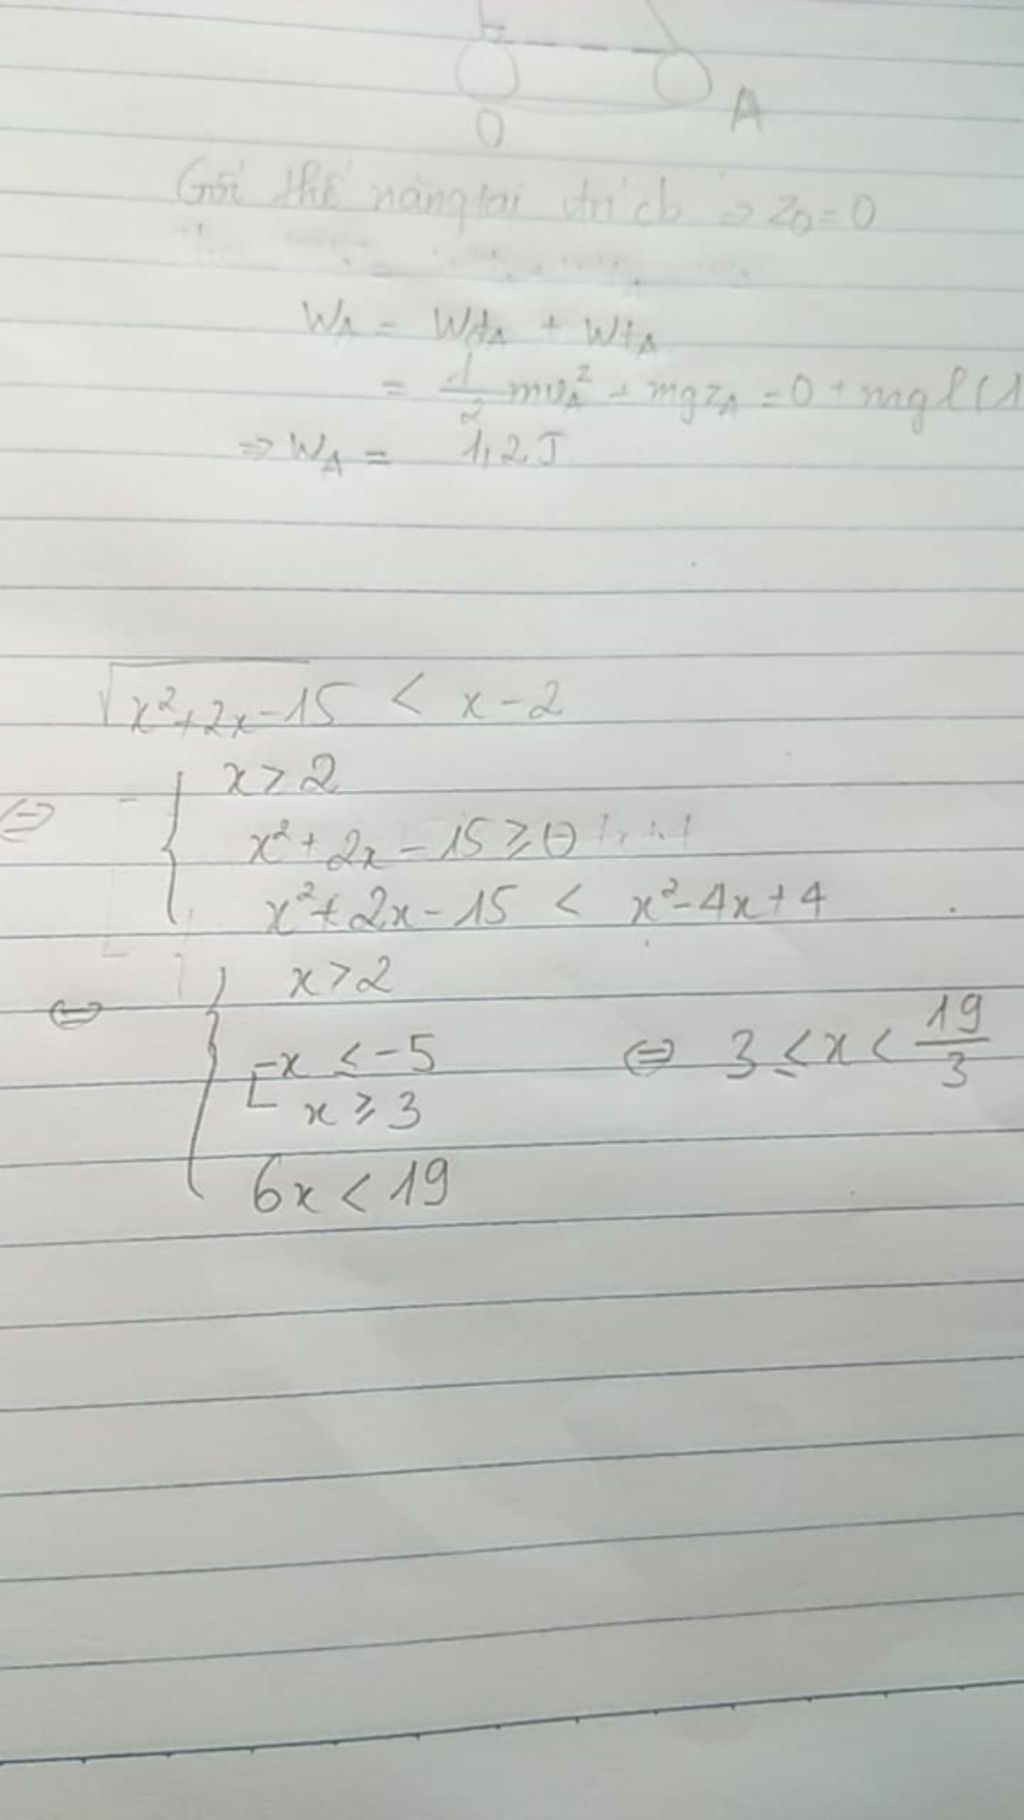 O
A
Gốc thế năng tại vtrí cb ⇒ z₀ = 0
W_A = Wđ_A + Wt_A
= 1/2 mv_A² + mgz_A = 0 + mgl(1
⇒ W_A = 1,2J
√(x²+2x-15) < x-2
⇔ { x > 2
x² + 2x - 15 ≥ 0
x² + 2x - 15 < x² - 4x + 4
⇔ { x > 2
[ x ≤ -5 ⇔ 3 ≤ x < 19/3
x ≥ 3
6x < 19